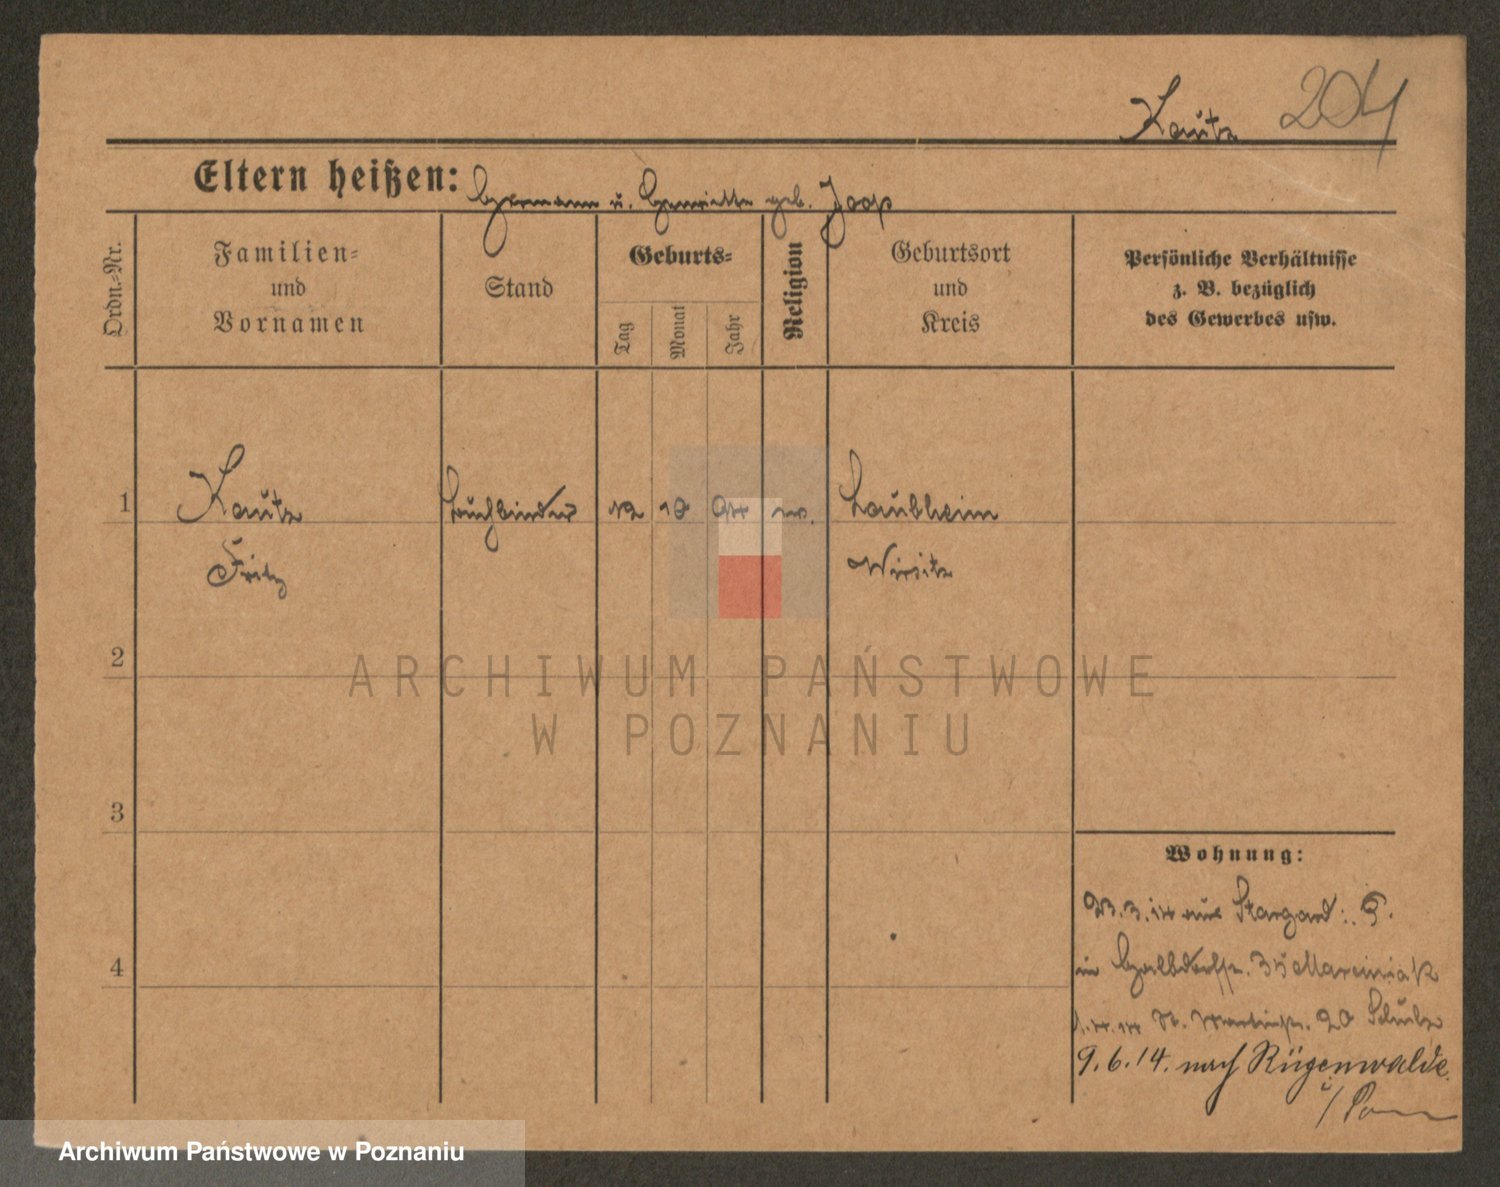 Kautz 204
Eltern heißen: Hermann u. Henriette geb. Joop
Ordn.-Nr.
Familien-
und
Vornamen
Stand
Geburts-
Tag
Monat
Jahr
Religion
Geburtsort
und
Kreis
Persönliche Verhältnisse
z. B. bezüglich
des Gewerbes usw.
1 Kautz Buchbinder 12 10 94 ev. Laubheim
Fritz Wirsitz
2
3
4
Wohnung:
23.3.14 aus Stargard i. P.
in Halbdorfstr. 35 Marciniak
1.4.14 St. Martinstr. 20 Schulz
9.6.14. nach Rügenwalde
i/ Pom
ARCHIWUM PAŃSTWOWE
W POZNANIU
Archiwum Państwowe w Poznaniu